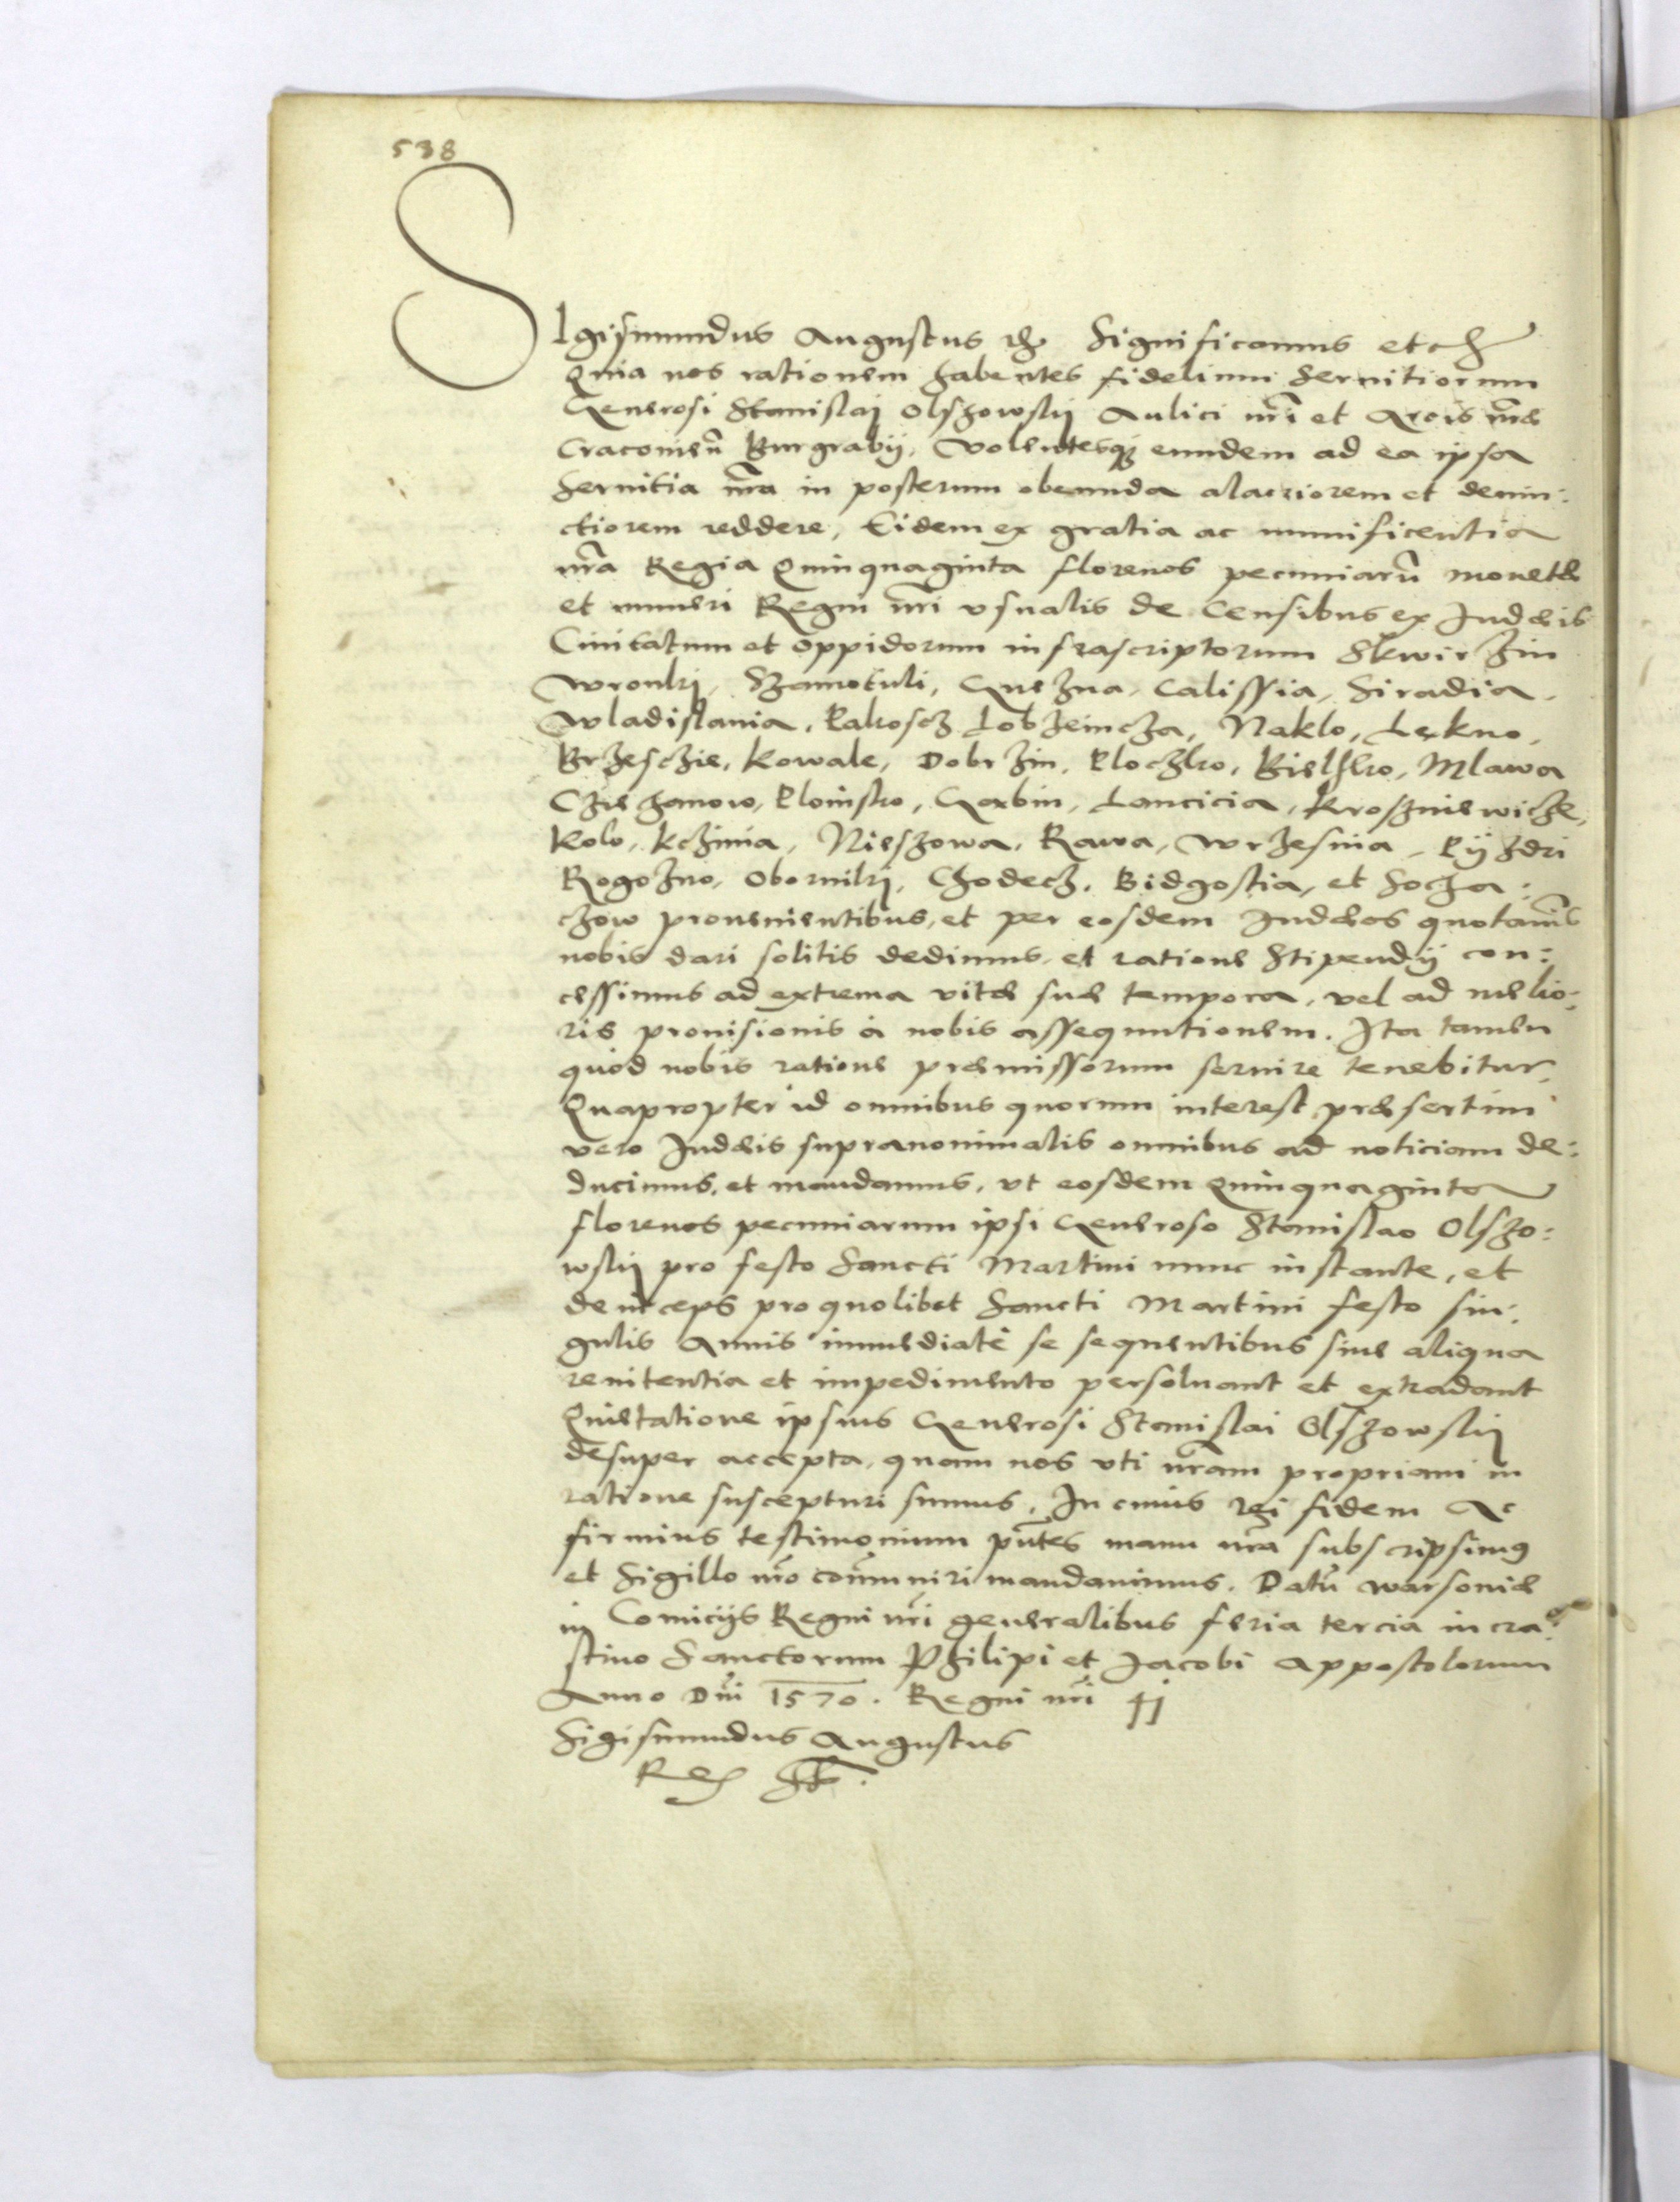 538
SIgismundus Augustus etc Significamus etc
Quia nos rationem habentes fidelium seruitiorum
Generosi Stanislaj Olszowskij Aulici nri et Arcis nrae
Cracouien Burgrabij, Volentesq eundem ad ea ipsa
seruitia nra in posterum obeunda alacriorem et deuin:
ctiorem reddere, Eidem ex gratia ac munificentia
nra Regia Quinquaginta florenos pecuniaru monetae
et numeri Regni nri vsualis de Censibus ex Judaeis
Ciuitatum et oppidorum infrascriptorum Skwirzin
Wronki, Szamotuli, Gnezna, Calissia, Siradia,
Wladislauia, Pakoscz Lobzemcza, Naklo, Lekno,
Brzesczie, Kowale, Dobrzin, Ploczko, Bielsko, Mlawa
Cziechanow, Plonsko, Gąbin, Lancicia, Krosniewicze,
Kolo, Kczinia, Nieszowa, Rawa, Wrzesnia, Pÿzdri
Rogozno, Oborniki, Chodecz, Bidgostia, et Socha:
czow prouenientibus, et per eosdem Judaeos quotanis
nobis dari solitis dedimus, et ratione Stipendij con:
cessimus ad extrema vitae suae tempora, vel ad melio:
ris prouisionis à nobis assequutionem. Ita tamen
quòd nobis ratione praemissorum seruire tenebitur,
Quapropter id omnibus quorum interest praesertim
vero Judaeis supranominatis omnibus ad noticiam de:
ducimus, et mandamus, vt eosdem Quinquaginta
florenos pecuniarum ipsi Generoso Stanislao Olszo:
wskij pro festo Sancti Martini nunc instante, et
deinceps pro quolibet Sancti Martini festo sin:
gulis Annis immediatè se sequentibus sine aliqua
renitentia et impedimento persoluant et extradant
Quietatione ipsius Generosi Stanislai Olszowskij
desuper accepta, quam nos vti nram propriam in
ratione suscepturi sumus, In cuius rei fidem Ac
firmius testimonium pntes manu nra subscripsimq
et Sigillo nro comuniri mandauimus. Datu Warsouiae
in Comicijs Regni nri generalibus feria tercia in cra:
stino Sanctorum Philipi et Jacobi Appostolorum
Anno Dni 1570. Regni nri 41
Sigismundus Augustus
Rex sst.